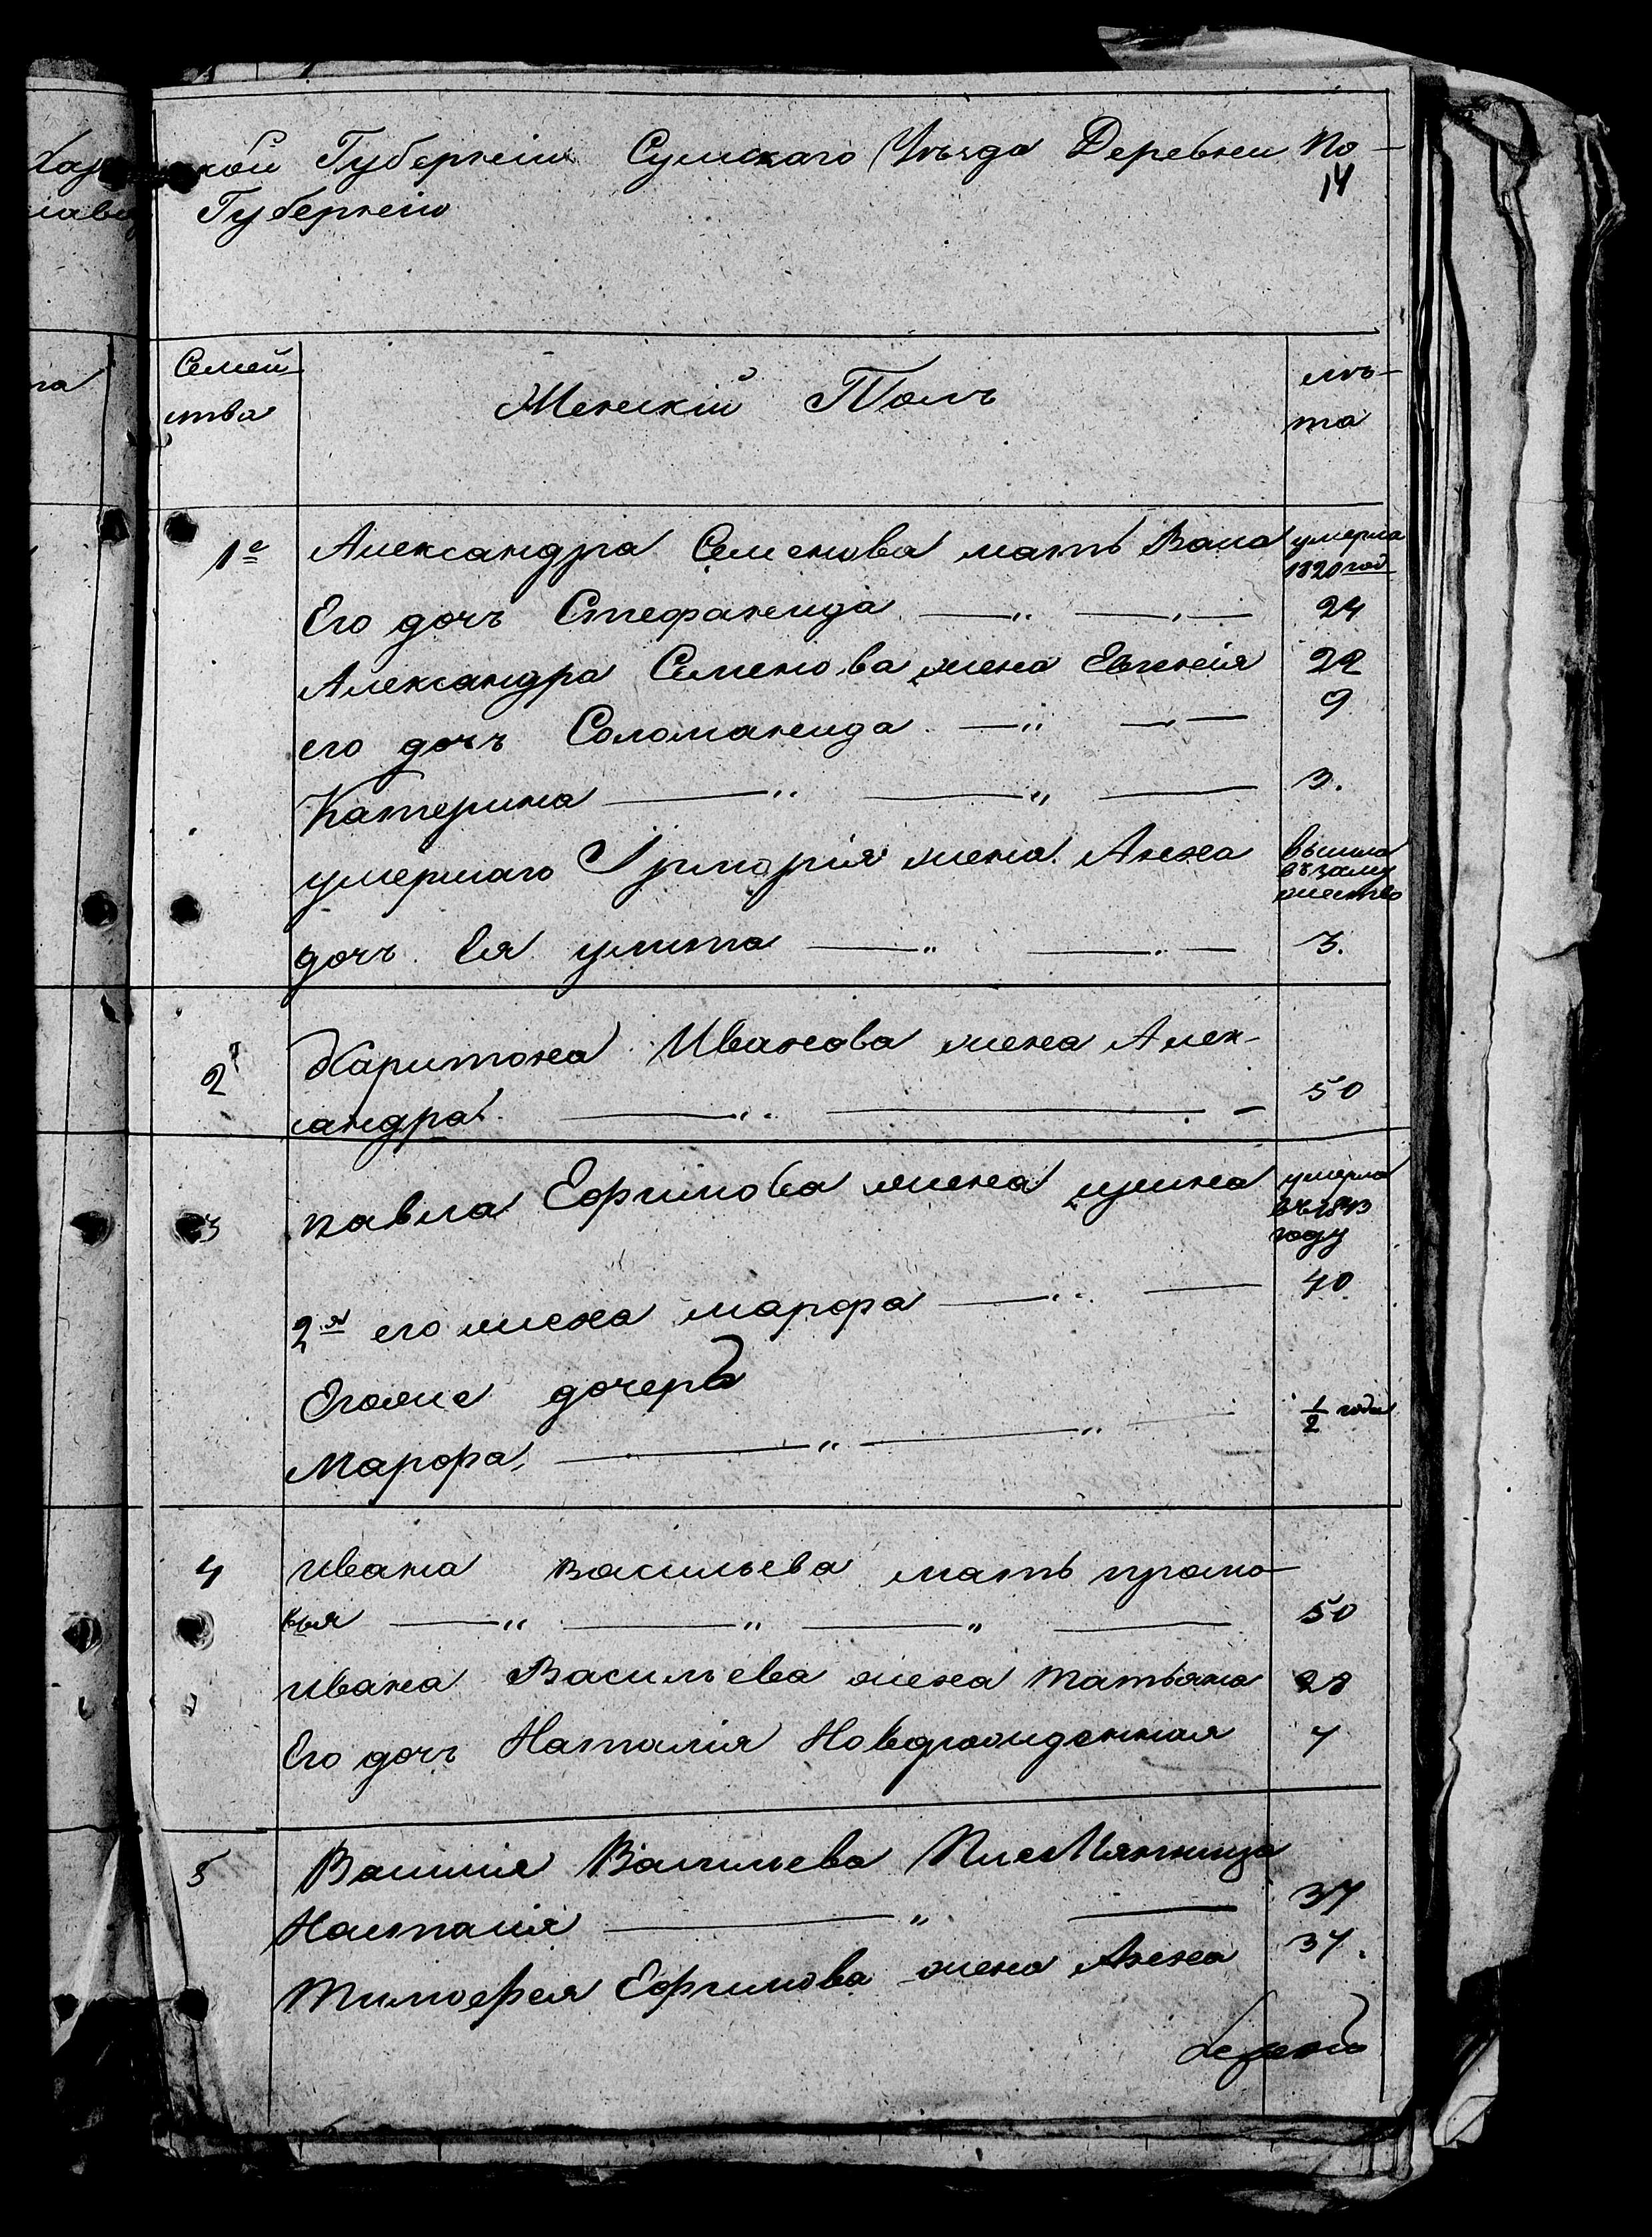 кой Губерніи Сумскаго Уѣзда Деревни По-
14
Губернію
Семей-
ства
Женскій Полъ
лѣ-
та
1е Александра Семенова мать Васа умерла
1820 год
Его дочь Стефанида 24
Александра Семенова жена Евгенія 22
его дочь Соломанида 9
Катерина 3.
умершаго Григорія жена Анна вышла
въ заму
жество
дочь Ея улита 3.
2 Харитона Иванова жена Алек-
сандра 50
3 павла Ефимова жена умерла
въ 18
году
2я его жена марфа 40
Егоже дочерь
Марфа 1/2 года
4 Ивана васильева мать
вья 50
ивана Васильева жена татьяна 28
Его дочь Наталія Новорожденная
5 Васильева
37
Тимофея Ефимова жена Анна 37.